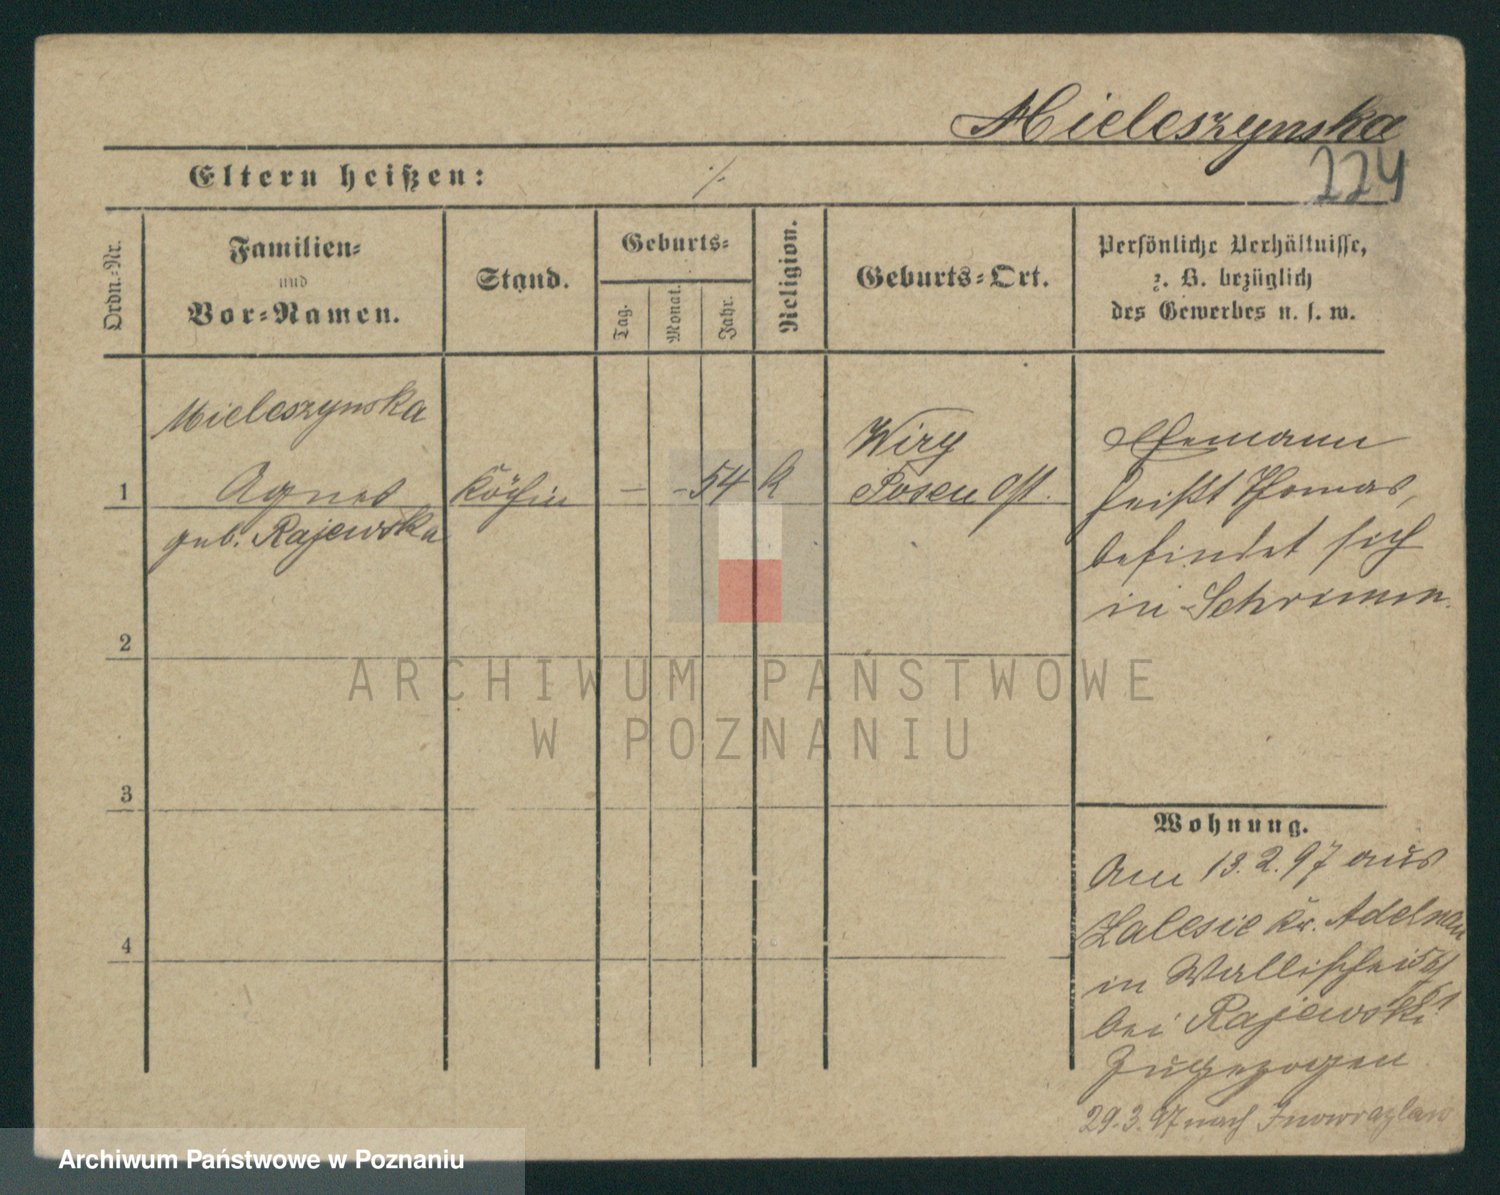 Mieleszynska
224
Eltern heißen: ·/.
Ordn.-Nr.
Familien-
und
Vor-Namen.
Stand.
Geburts-
Tag.
Monat.
Jahr.
Religion.
Geburts-Ort.
Persönliche Verhältnisse,
z. B. bezüglich
des Gewerbes u. s. w.
Mieleszynska
1 Agnes Köchin — - 54 k
geb. Rajewska
Wiry
Posen Ost.
Ehemann
heißt Thomas,
befindet sich
in Schrimm.
2
3
4
Wohnung.
Am 13.2.97 aus
Zalesie Kr. Adelnau
in Wallischei
bei Rajewski
zugezogen
29.3.97 nach Inowrazlaw
ARCHIWUM PAŃSTWOWE
W POZNANIU
Archiwum Państwowe w Poznaniu